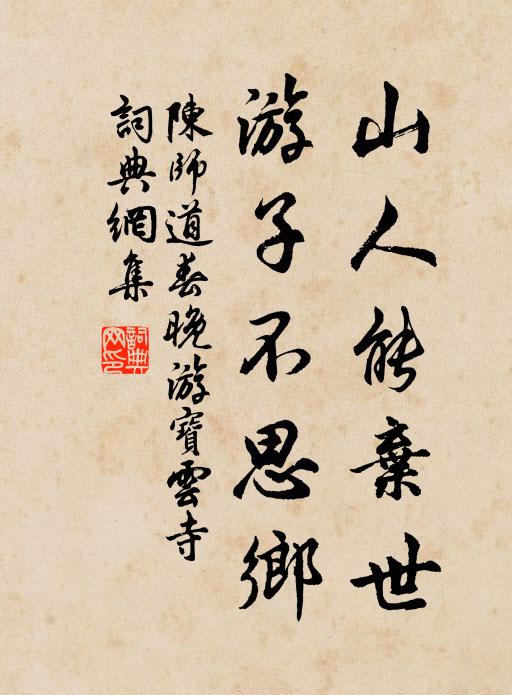 山人能棄世
游子不思鄉
陳師道春晚游寶雲寺
詞典網集
詞典網印